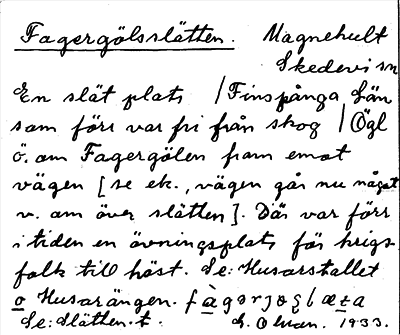 Fagergölsslätten. Magnehult
Skedevi sn
En slät plats /Finspånga Län
som förr var fri från skog / Ögl
ö. om Fagergölen fram emot
vägen [se ek., vägen går nu något
v. om över slätten]. Där var förr
i tiden en övningsplats för krigs
folk till häst. Se: Husarstallet
o Husarängen.
Se: Slätten. t. 1933.